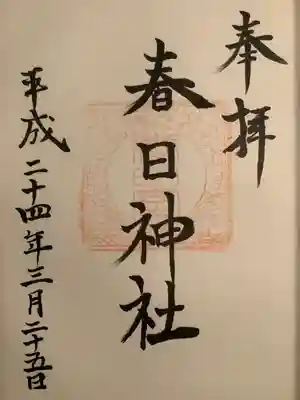 奉拝
春日神社
平成二十四年三月二十五日